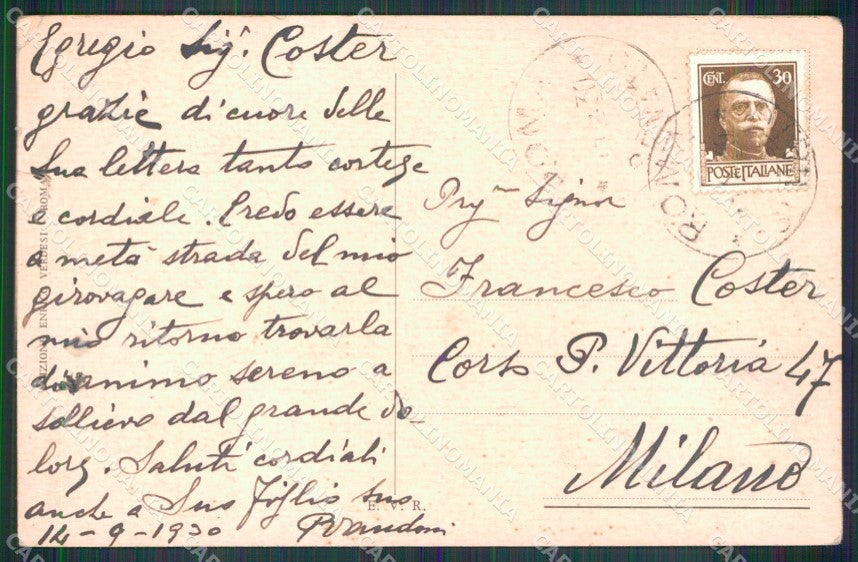 Egregio Sigr. Coster
grazie di cuore delle
Sua lettera tanto cortese
e cordiale. Credo essere
a metà strada del mio
girovagare e spero al
mio ritorno trovarla
d'animo sereno a
sollievo dal grande do-
lore. Saluti cordiali
anche a Suo Figlio suo
14-9-1930
Signor
Francesco Coster
Corso P. Vittoria 47
Milano
CENT. 30
POSTE ITALIANE
ROMA
ROMA
EDIZIONI ENR. VERDESI ROMA
E. V. R.
CARTOLINOMANIA